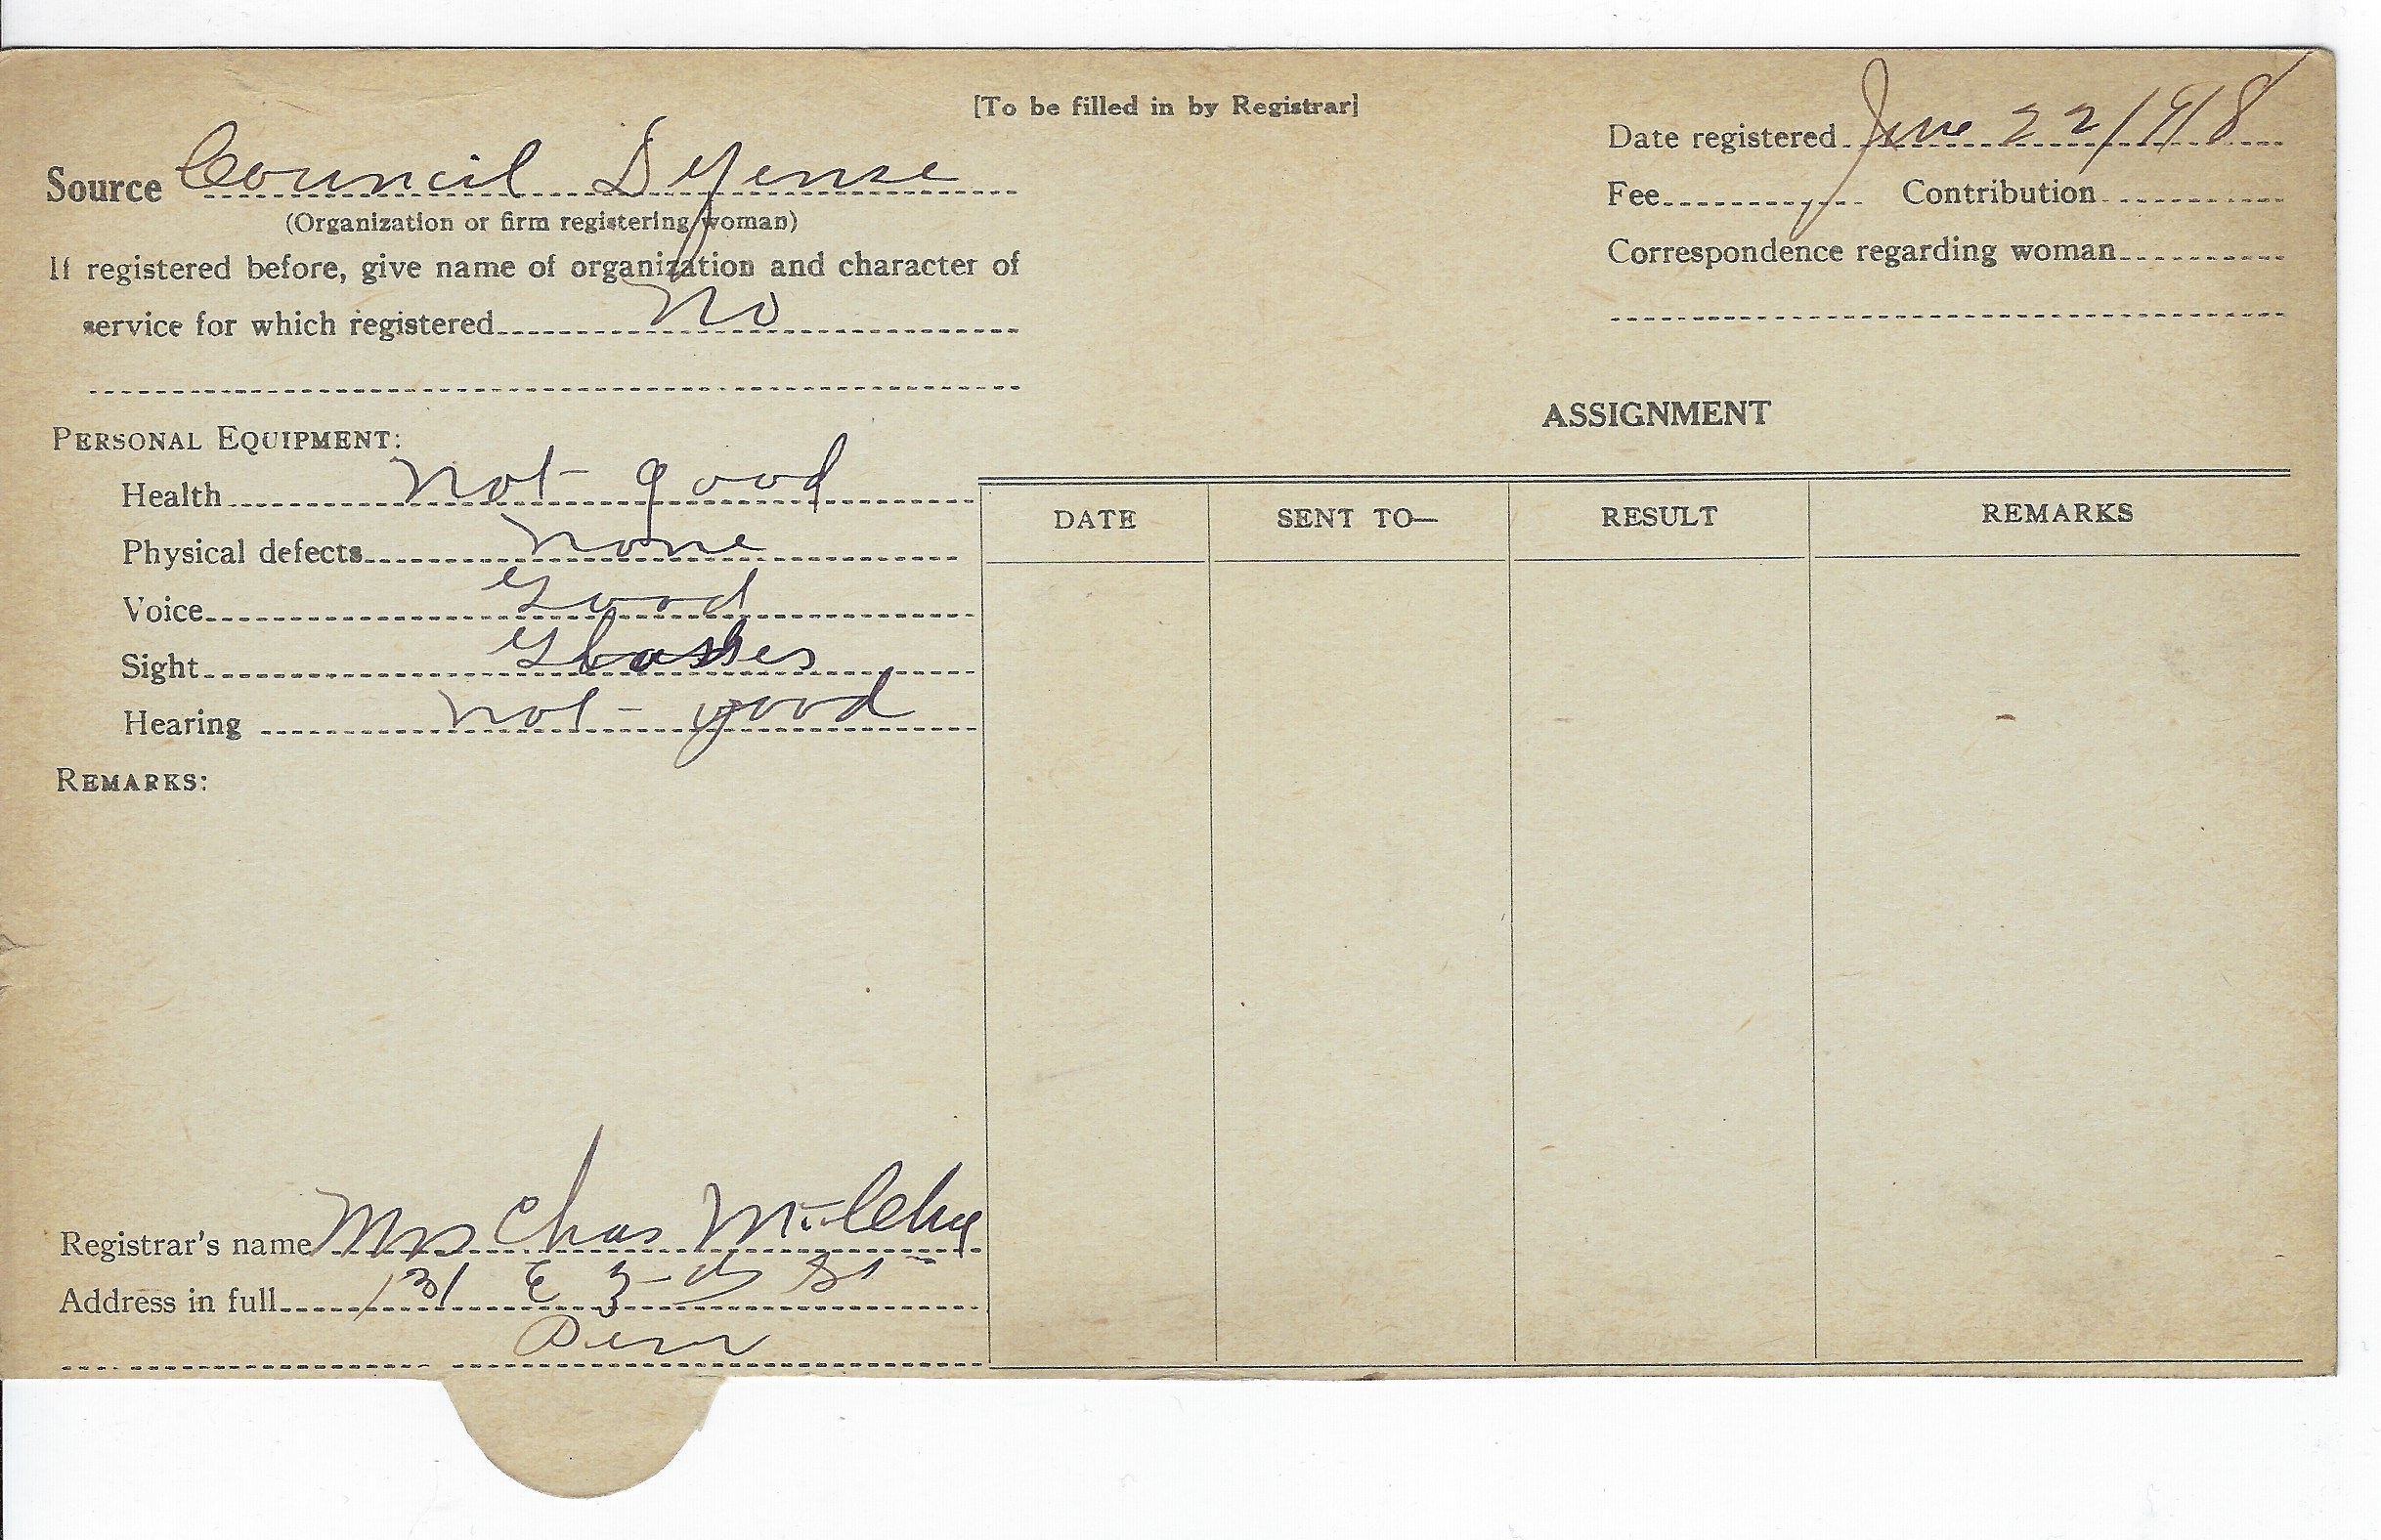 [To be filled in by Registrar]
Source Council Defense
(Organization or firm registering woman)
If registered before, give name of organization and character of
service for which registered No
Date registered June 22/1918
Fee Contribution
Correspondence regarding woman
PERSONAL EQUIPMENT:
Health not good
Physical defects none
Voice Good
Sight Glasses
Hearing not good
REMARKS:
ASSIGNMENT
DATE SENT TO— RESULT REMARKS
Registrar's name Mrs Chas
Address in full 131 E St